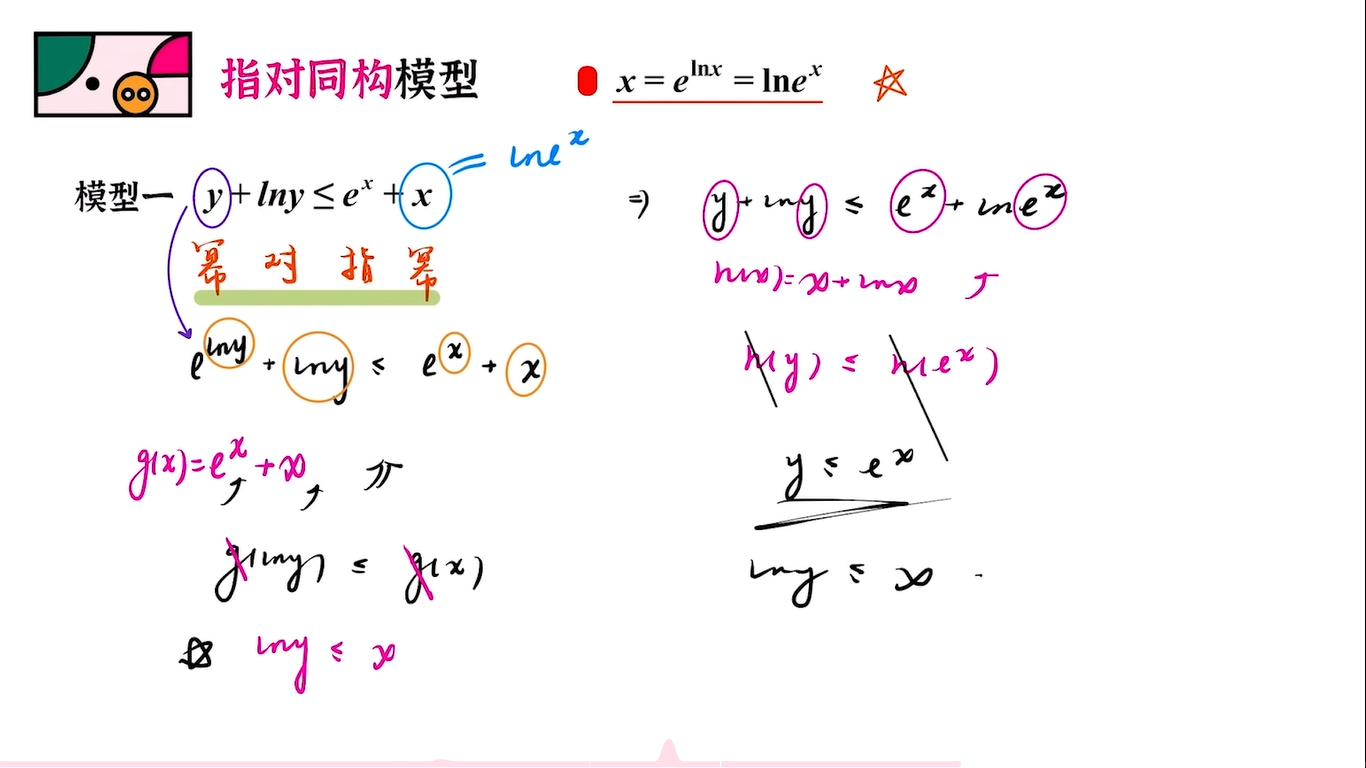 指对同构模型
x = e^{lnx} = lne^x
= lne^x
模型一 y + lny ≤ e^x + x
幂 对 指 幂
e^{lny} + lny ≤ e^x + x
g(x)=e^x+x
g(lny) ≤ g(x)
lny ≤ x
⇒ y + lny ≤ e^x + lne^x
h(x)=x+lnx ↑
h(y) ≤ h(e^x)
y ≤ e^x
lny ≤ x